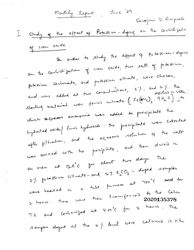 Monthly Report June 89
Sanjeev D. Gupta
I Study of the effect of Potassium-doping on the Carburization
of iron oxide.
In order to study the effect of Potassium-doping
on the Carburization of iron oxide, two salts of potassium,
potassium Carbonate, and potassium nitrate, were chosen,
and was added at two concentrations, 2%, and 4%. The
starting material was ferric nitrate
added to precipitate the
hydrated oxide/ iron hydroxide. The precipitate was extracted
after filtration, and the aqueous solution of the salt
was mixed with the precipitate, and then dried in
an oven at for about two days. The
2% potassium nitrate and 2% K2CO3 - doped samples
were heated in a tube furnace at and for
2 hours. They were then transferred to the
2020135378
and Carburized at for 2 hours. The
samples doped at the 4% level were calcined in the